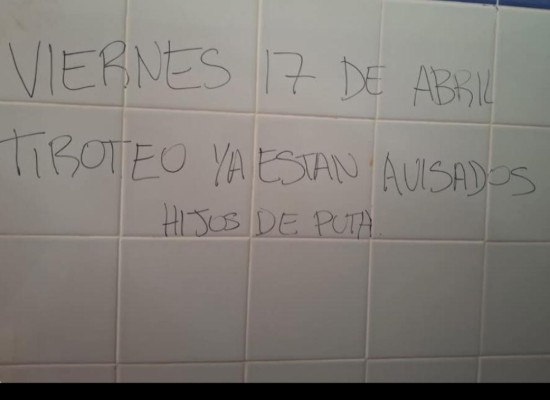 VIERNES 17 DE ABRIL
TIROTEO YA ESTAN AVISADOS
HIJOS DE PUTA.